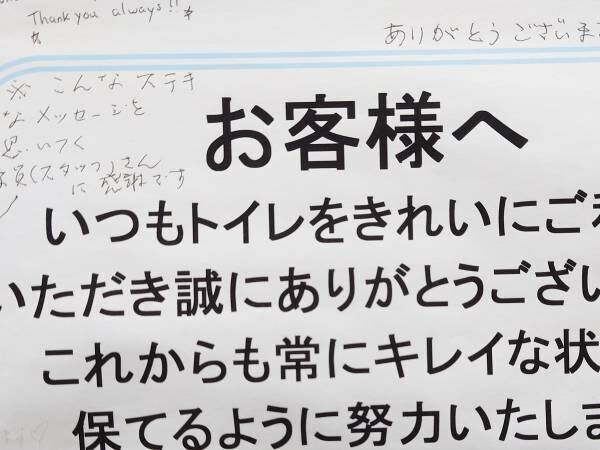 Thank you always!!
ありがとうございま
※ こんなステキ
なメッセージを
思いつく
員(スタッフ)さん
に感謝です
お客様へ
いつもトイレをきれいにご
いただき誠にありがとうござい
これからも常にキレイな状
保てるように努力いたしま